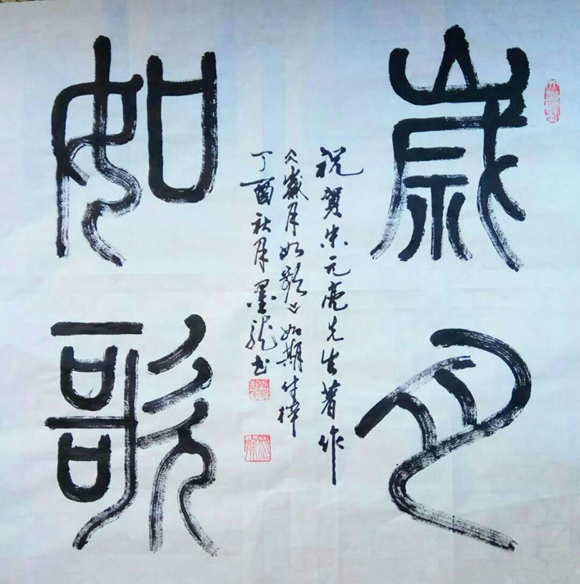 岁月
如歌
祝贺朱元亮先生著作
《岁月如歌》如期付梓
丁酉秋月墨龙书